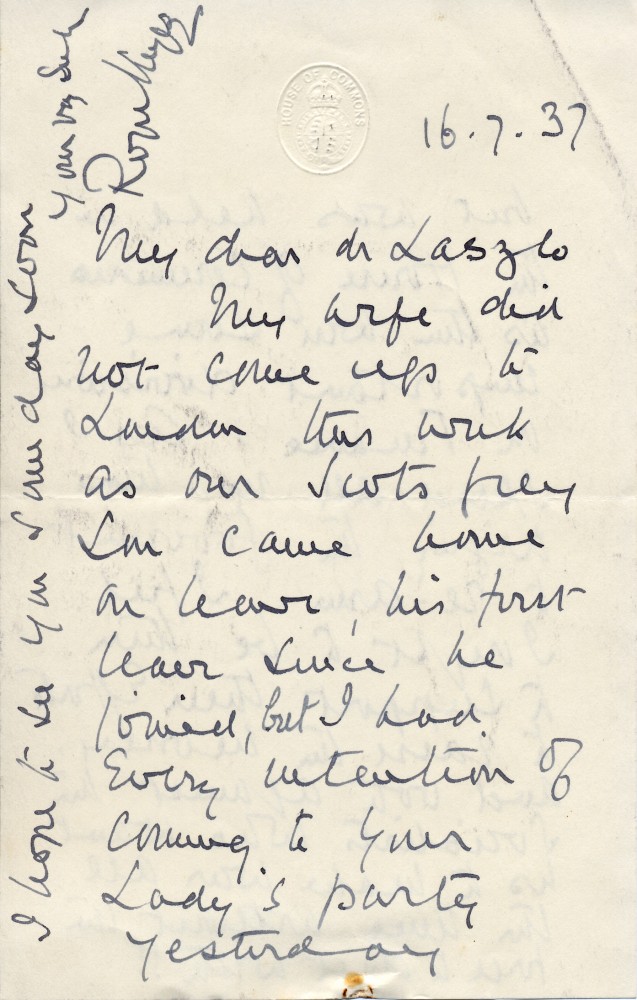 HOUSE OF COMMONS
16.7.37
My dear de Laszlo
My wife did
not come up to
London this week
as our Scots Grey
Son came home
on leave, his first
leave since he
joined, but I had
Every intention of
coming to your
Lady's party
yesterday
I hope to see you some day soon
Yours very sinc
Roger Keyes